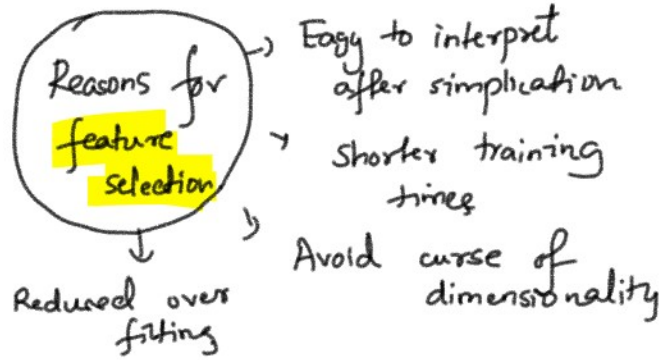 Reasons for
feature
selection
Eagy to interpret
after simplication
shorter training
times
Avoid curse of
dimensionality
Reduned over
fitting